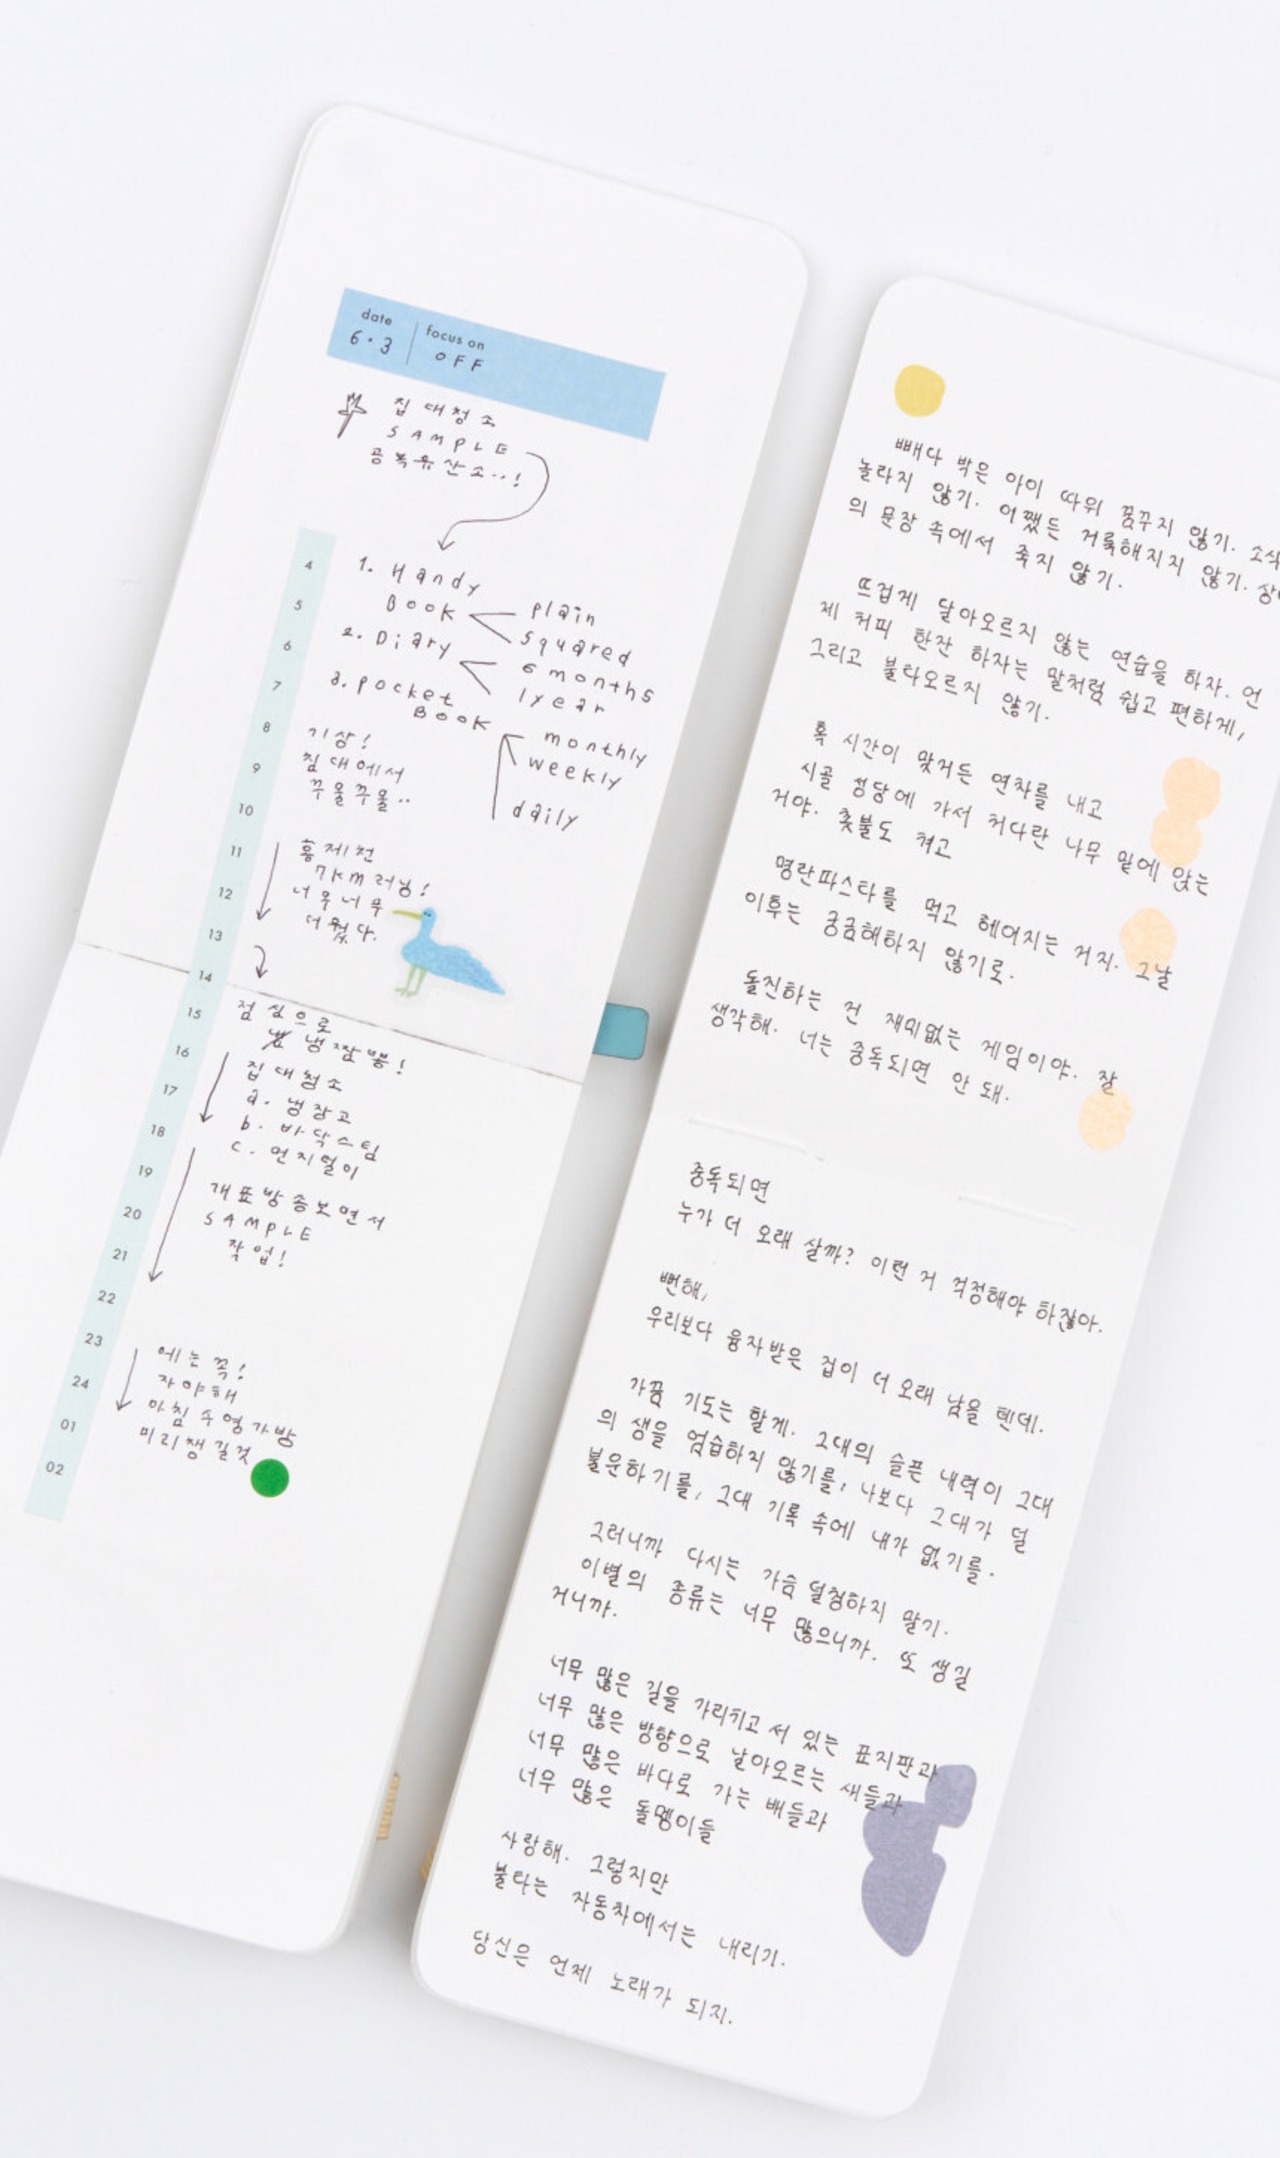 date
6.3
focus on
OFF
집 대청소
SAMPLE
공복유산소..!
1. Handy
Book
plain
squared
2. Diary
6 months
1year
3. pocket
Book
monthly
weekly
daily
4
5
6
7
8
9
10
11
12
13
14
15
16
17
18
19
20
21
22
23
24
01
02
기상!
침대에서
꾸물꾸물..
홍제천
7KM 러닝!
너무너무
더웠다.
점심으로
냉짬뽕!
집 대청소
a. 냉장고
b. 바닥스팀
c. 먼지털이
개표방송보면서
SAMPLE
작업!
에는 꼭!
자야해
아침 수영가방
미리챙길것
빼다 박은 아이 따위 꿈꾸지 않기. 소식
놀라지 않기. 어쨌든 거룩해지지 않기. 상
의 문장 속에서 죽지 않기.
뜨겁게 달아오르지 않는 연습을 하자. 언
제 커피 한잔 하자는 말처럼 쉽고 편하게,
그리고 불타오르지 않기.
혹 시간이 맞거든 연차를 내고
시골 성당에 가서 커다란 나무 밑에 앉는
거야. 촛불도 켜고
명란파스타를 먹고 헤어지는 거지. 그날
이후는 궁금해하지 않기로.
돌진하는 건 재미없는 게임이야. 잘
생각해. 너는 중독되면 안 돼.
중독되면
누가 더 오래 살까? 이런 거 걱정해야 하잖아.
뻔해,
우리보다 융자받은 집이 더 오래 남을 텐데.
가끔 기도는 할게. 그대의 슬픈 내력이 그대
의 생을 엄습하지 않기를, 나보다 그대가 덜
불운하기를, 그대 기록 속에 내가 없기를.
그러니까 다시는 가슴 덜컹하지 말기.
이별의 종류는 너무 많으니까. 또 생길
거니까.
너무 많은 길을 가리키고 서 있는 표지판과
너무 많은 방향으로 날아오르는 새들과
너무 많은 바다로 가는 배들과
너무 많은 돌멩이들
사랑해. 그렇지만
불타는 자동차에서는 내리기.
당신은 언제 노래가 되지.